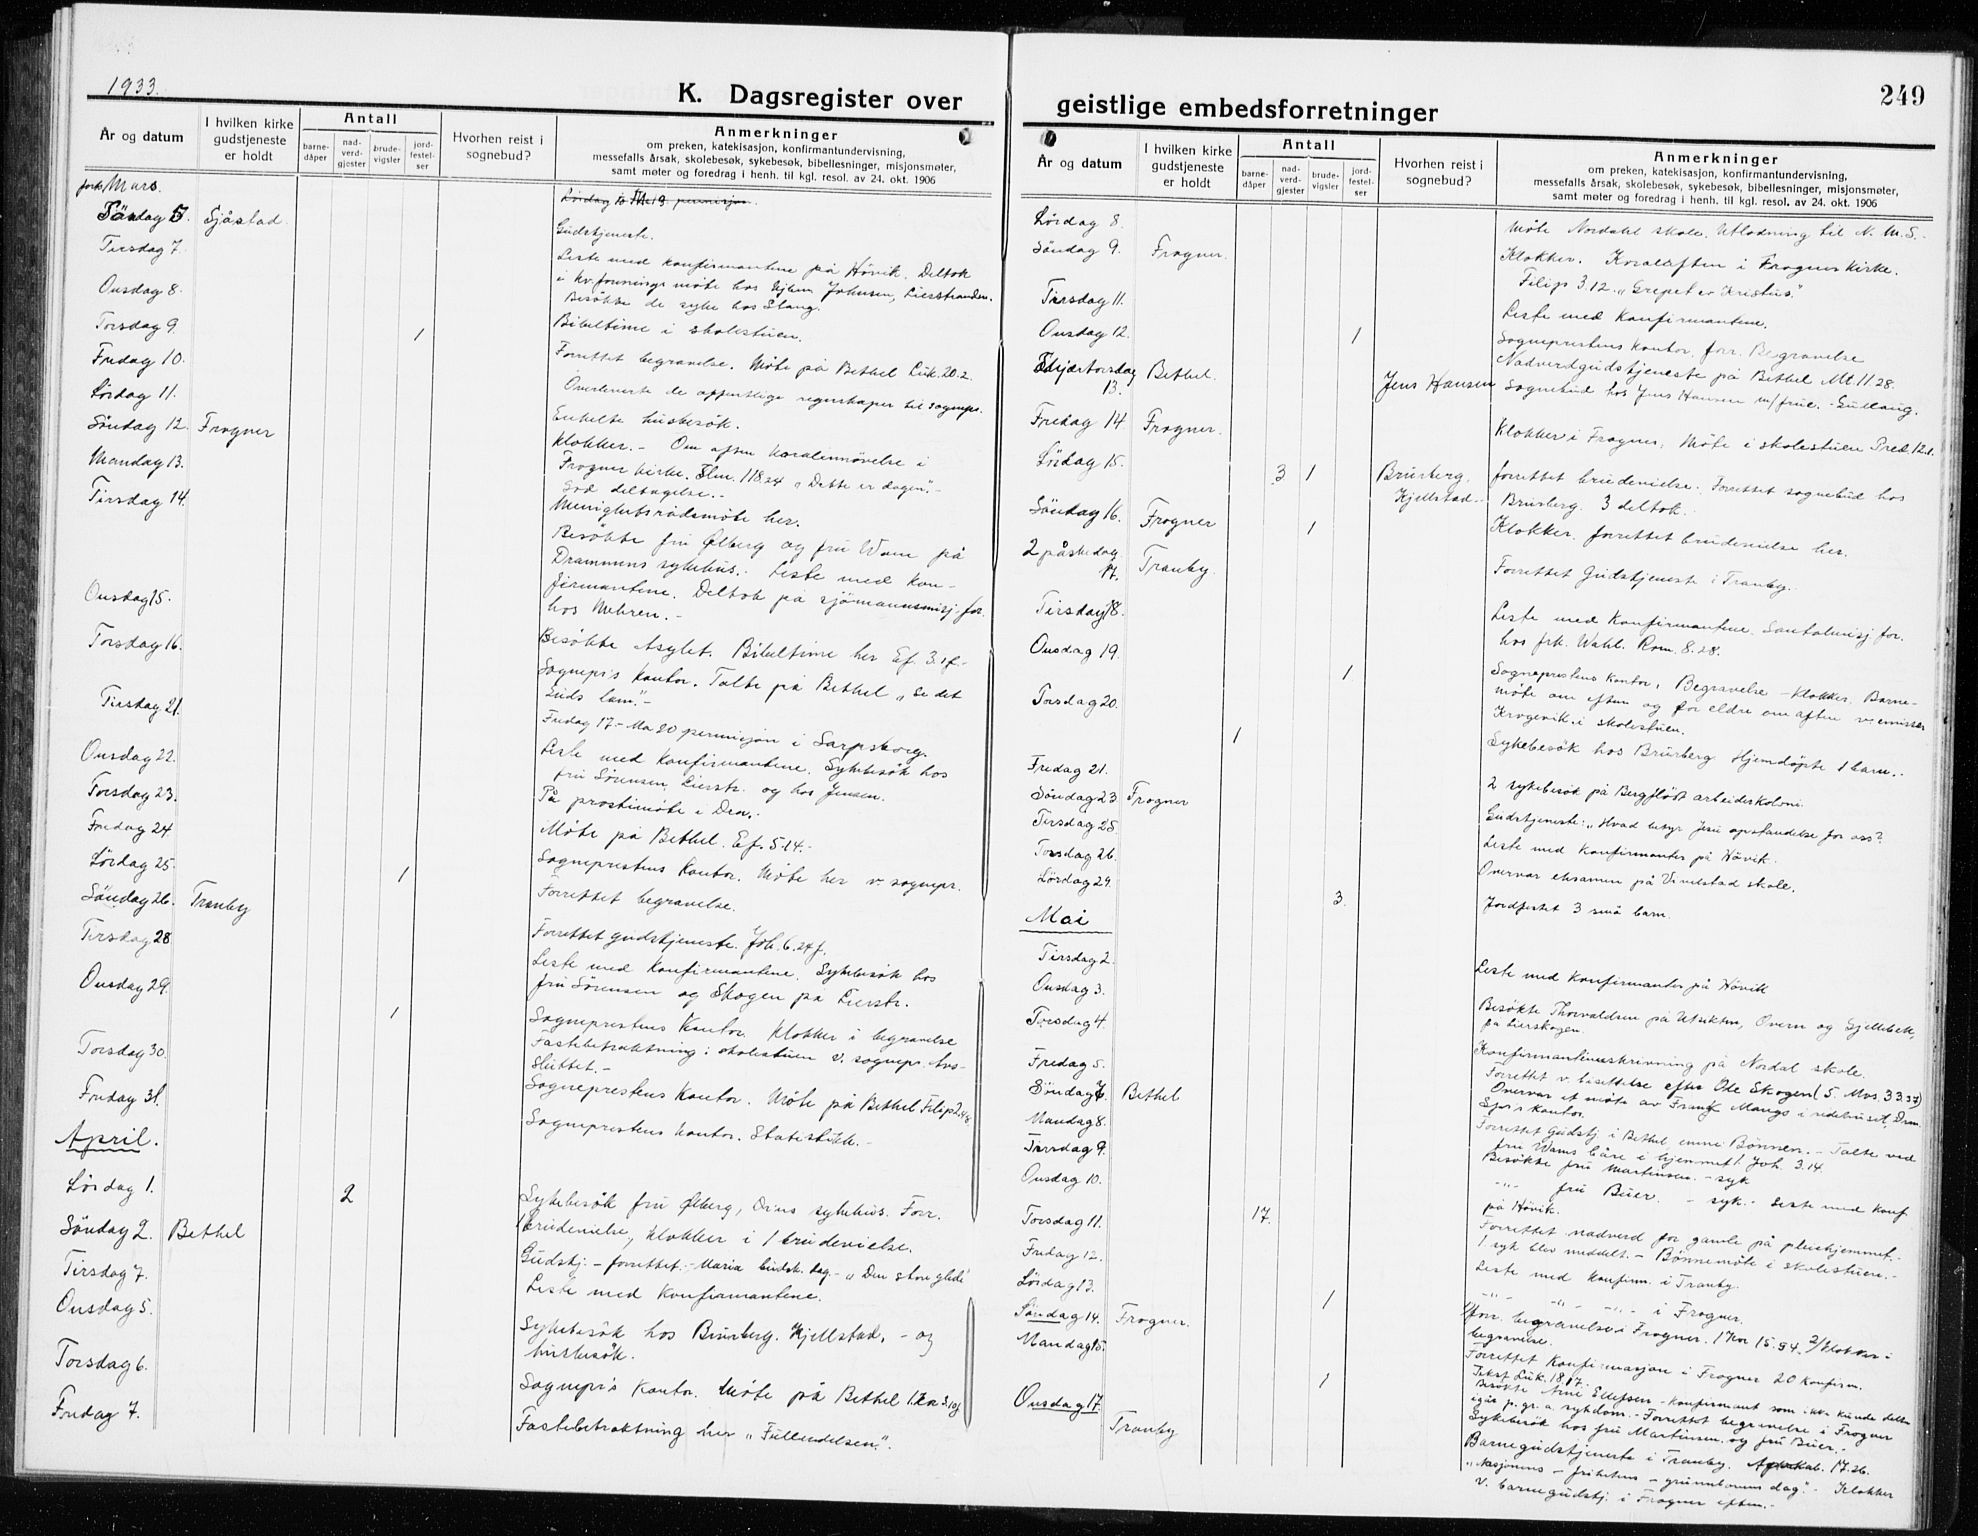 1933.
K. Dagsregister over
År og datum
I hvilken kirke gudstjeneste er holdt
Antall
barne-dåper
nad-verd-gjester
brude-vigsler
jord-festel-ser
Hvorhen reist i sognebud?
Anmerkninger
om preken, katekisasjon, konfirmantundervisning,
messefalls årsak, skolebesøk, sykebesøk, bibellesninger, misjonsmøter,
samt møter og foredrag i henh. til kgl. resol. av 24. okt. 1906
Mars.
Søndag 5 Sjåstad
Gudstjeneste.
Tirsdag 7.
Leste med konfirmantene på Hövik. Deltok
i kv.forenings møte hos Johnsen, Lierstranden.
Onsdag 8.
Besökte de syke hos Stang.
Torsdag 9. 1
Bibeltime i skolestuen.
Fredag 10.
Forrettet begravelse. Möte på Bethel Luk. 20.2.
Lördag 11.
Overleverte de offentlige regnskaper til sognepr.
Söndag 12. Frogner
Enkelte husbesök.
Klokker. - Om aften koralinnövelse i
Frogner kirke. Slm. 118.24 "Dette er dagen". -
God deltagelse. -
Mandag 13.
Menighetsrådsmöte her.
Tirsdag 14.
Besökte fru Ølberg og fru Wam på
Drammens sykehus. Leste med kon-
firmantene. Deltok på sjömannsmisj. for.
hos Mehren. -
Onsdag 15.
Besökte Asylet. Bibeltime her Ef. 3.1f. -
Torsdag 16.
Sognepr's kontor. Talte på Bethel "Se det
Guds lam". -
Fredag 17 - Ma 20 permisjon i Sarpsborg.
Tirsdag 21.
Leste med konfirmantene. Sykebesök hos
fru Sørensen, Lierstr. og hos Jensen.
Onsdag 22.
På prostimöte i Drm.
Torsdag 23.
Möte på Bethel. Ef. 5.14. -
Fredag 24.
Sogneprestens kontor. Möte her v. sognepr.
Lördag 25. 1
Forrettet begravelse.
Söndag 26. Tranby
Forrettet gudstjeneste. Joh. 6.24f.
Tirsdag 28.
Leste med konfirmantene. Sykebesök hos
fru Sörensen og Skogen på Lierstr.
Onsdag 29. 1
Sogneprestens Kontor. Klokker i begravelse
Fastebetraktning i skolestuen v. sognepr. Avs-
sluttet. -
Torsdag 30.
Sogneprestens Kontor. Möte på Bethel Filip 2.4-8
Fredag 31.
Sogneprestens Kontor. Statistikk. -
April.
Lördag 1. 2
Sykebesök fru Ølberg, Drms sykehus. Forr.
1 brudevielse, klokker i 1 brudevielse.
Söndag 2. Bethel
Gudstj. - forrettet. - Maria budsk. dag - "Den store glede"
Tirsdag 7.
Leste med konfirmantene.
Onsdag 5.
Sykebesök hos Brurberg. Kjellstad, - og
husbesök.
Torsdag 6.
Sognepr's Kontor. Möte på Bethel 1. Kor 3.10f
Fredag 7.
Fastebetraktning her "Fullendelsen". -
geistlige embedsforretninger
249
År og datum
I hvilken kirke gudstjeneste er holdt
Antall
barne-dåper
nad-verd-gjester
brude-vigsler
jord-festel-ser
Hvorhen reist i sognebud?
Anmerkninger
om preken, katekisasjon, konfirmantundervisning,
messefalls årsak, skolebesøk, sykebesøk, bibellesninger, misjonsmøter,
samt møter og foredrag i henh. til kgl. resol. av 24. okt. 1906
Lördag 8.
Möte Nordahl skole. Utlodning til N. M. S. -
Söndag 9. Frogner.
Klokker. Koralaften i Frogner kirke.
Filip 3.12. "Grepet av Kristus".
Tirsdag 11.
Leste med Konfirmantene.
Onsdag 12. 1
Sogneprestens kontor, forr. Begravelse
Skjærtorsdag 13. Bethel.
Nadverdgudstjeneste på Bethel Mt. 11.28.
Jens Hansen
Sognebud hos Jens Hansen m/frue. - Gullaug.
Fredag 14. Frogner.
Klokker i Frogner. Möte i skolestuen Pred. 12.1.
Lördag 15. 3 1 Brurberg, Kjellstad. -
forrettet brudevielse. Forrettet sognebud hos
Brurberg. 3 deltok.
Söndag 16. Frogner 1
Klokker, forrettet brudevielse her.
2 påskedag 17. Tranby.
Forrettet Gudstjeneste i Tranby.
Tirsdag 18.
Leste med Konfirmantene. Santalmisj. for.
hos frk. Wahl. Rom. 8.28.
Onsdag 19. 1
Sogneprestens kontor, Begravelse - klokker. Barne-
möte om efterm og for eldre om aften v. emissær
Krogevik i skolestuen.
Torsdag 20. 1
Sykebesök hos Brurberg Hjemdöpte 1 barn. -
Fredag 21.
2 sykebesök på Bergflödt arbeidskoloni
Söndag 23. Frogner
Gudstjeneste: "Hvad betyr Jesu opstandelse for oss?
Tirsdag 25.
Leste med konfirmanter på Hövik.
Torsdag 26.
Overvar eksamen på Vivelstad skole.
Lördag 29. 3.
Jordfestet 3 små barn.
Mai
Tirsdag 2.
Leste med konfirmanter på Hövik
Onsdag 3.
Besökte Thorvaldsen på Utsikten, Overn og Gjellebek,
på Lierskogen.
Torsdag 4.
Konfirmantinnskrivning på Nordal skole.
Fredag 5.
Forrettet v. bisettelse efter Ole Skogen (5. Mos. 33.27)
Overvar et möte av Frank Mangs i ridehuset, Drm.
Spr's kontor.
Söndag 7. Bethel
Forrettet Gudstj. i Bethel emne Bönnen. - Talte ved
fru Wams båre i hjemmet Joh. 3.14.
Mandag 8.
Besökte fru Martinsen. - syk
Tirsdag 9.
-"- fru Buer. - syk. - Leste med konf
på Hövik.
Onsdag 10.
Torsdag 11. 17.
Forrettet nadverd for gamle på pleiehjemmet. -
1 syk blev meddelt. - Bönnemöte i skolestuen. -
Fredag 12.
Leste med konfirm. i Tranby.
Lördag 13. 1
-"- -"- -"- i Frogner.
Söndag 14. Frogner.
1/forr. begravelse i Frogner. 1 Kor 15.54. 2/Klokker i
begravelse.
Forrettet Konfirmasjon i Frogner 20 konfirm.
Tekst Luk. 18.17.
Mandag 15. 1
Besökte Arne Ellefsen - konfirmant som ikke kunde delta
igår p. gr. a. sykdom. - Forrettet begravelse i Frogner
Sykebesök hos fru Martinsen og fru Buer. -
Onsdag 17. Tranby
Barnegudstjeneste i Tranby. 17.26.
"Nasjonens - frihetens - grunnlovens dag". - Klokker
v. barnegudstj. i Frogner efterm. -